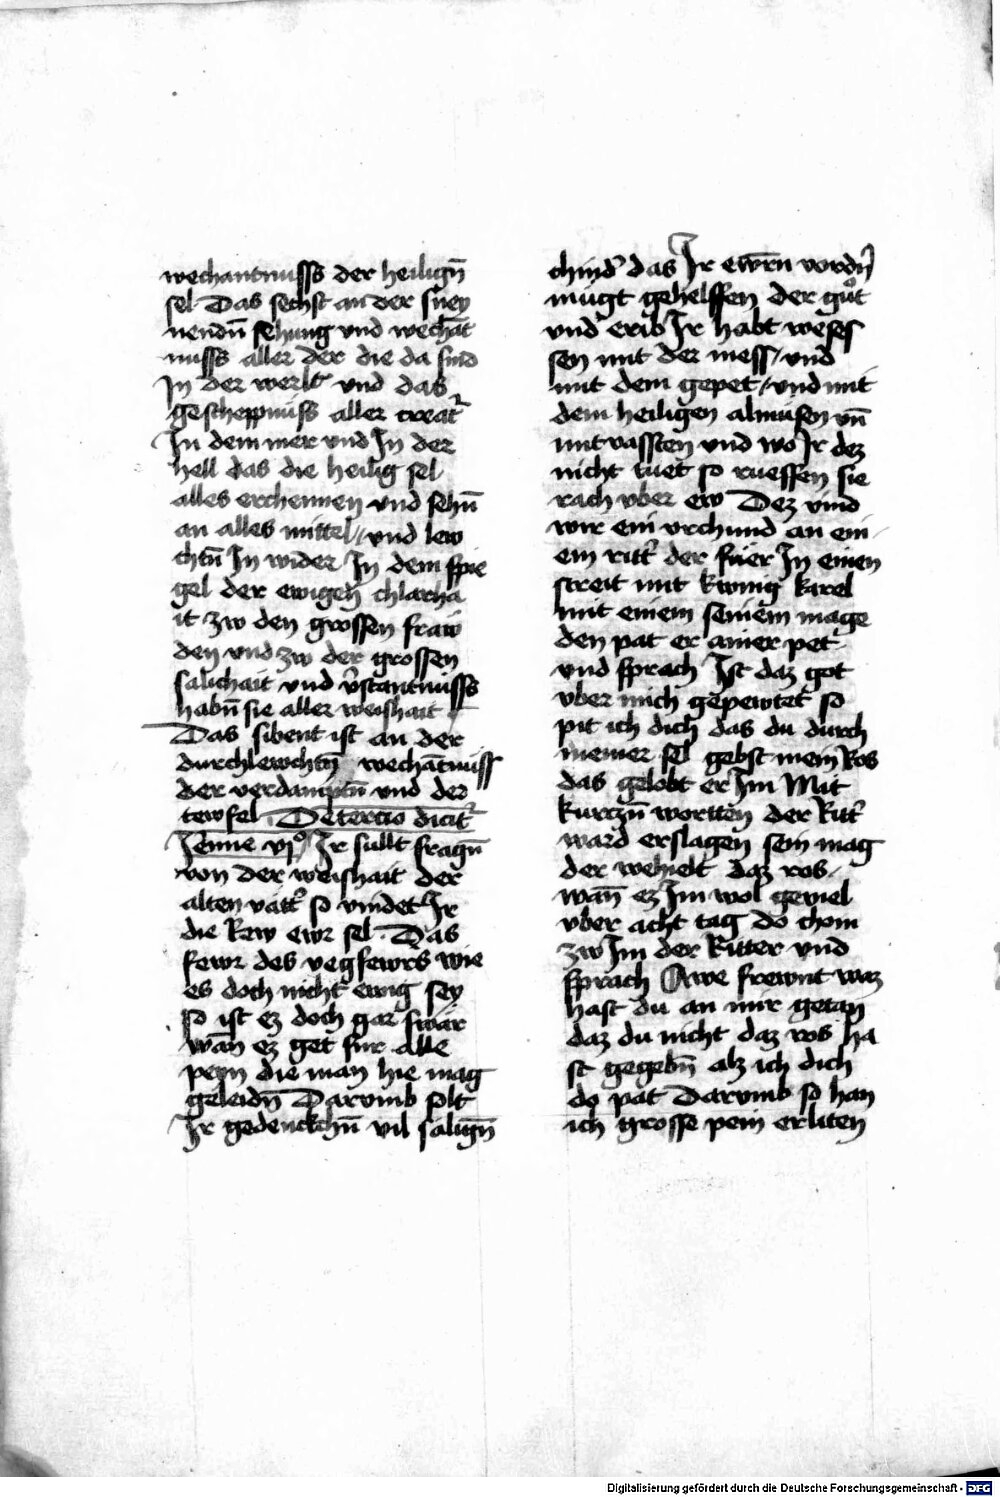 wechantnuss der heilign̄
sel Das sechst an der sney
nendn̄ sehung vnd wechāt
nuss aller der die da sind
In der werlt vnd das
gescheppnuss aller creat̄
In dem mer vnd In der
hell das die heilig sel
alles erchennen vnd sehn̄
an alles mittel / vnd lew
chtn̄ In wider In dem spie
gel der ewigen chlarha
it zw den grossen fraw
den vnd zw der grossen
salichait vnd v̄stantnuss
habn̄ sie aller weishait
Das sibent ist an der
durchlewchtn̄ wechātnuss
der verdamptn̄ vnd der
tewfel De tercio dicit̄
Jenne vjº Ir sullt fragn̄
von der weishait der
alten vätt̄ so vindet Ir
die Rew ewr sel. Das
fewr des vegfewrs wie
es doch nicht ewig sey
so ist ez doch gar swär
wān ez get fur alle
peyn die man hie mag
geleidn̄ Darvmb solt
Ir gedenckchn̄ vil salign̄
chind̄ das Ir ewrn vordn̄
mügt gehelffen der gůt
vnd erib Ir habt weses
sen mit der mess / vnd
mit dem gepet / vnd mit
dem heiligen almusen vn̄
mit vassten vnd wo Ir dez
nicht tuet so rueffen sie
rach vber ew Dez vind
wir ein vrchund an ein
em ritt̄ der füer In einen
streit mit kwnig karel
mit einem seniem mage
den pat er ainer pet̄
vnd sprach Ist daz got
vber mich gepewtet so
pit ich dich das du durch
meiner sel gebst mein Ros
das gelobt er Im Mit
kurczn̄ wortten der Ritt̄
ward erslagen sein mag
der wehielt daz ros
wān ez Im wol geuiel
vber acht tag do chom
zw Im der Ritter vnd
sprach Awe frewnt waz
hast du an mir getan
daz du nicht daz ros ha
st gegebn̄ alz ich dich
do pat Darvmb so han
ich grosse pein erliten
Digitalisierung gefördert durch die Deutsche Forschungsgemeinschaft - DFG